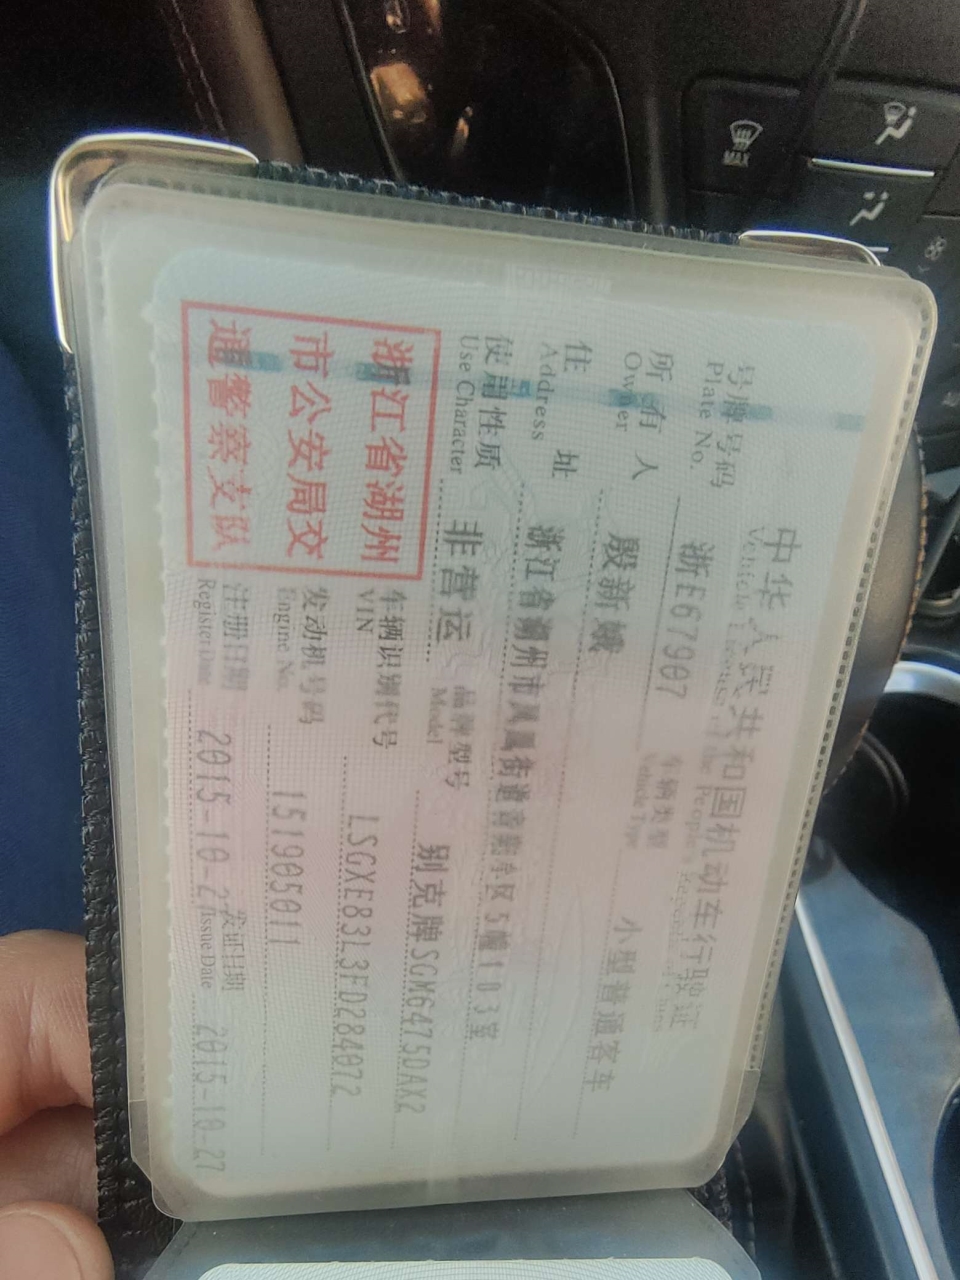 中华人民共和国机动车行驶证
Vehicle License of the People's Republic of China
号牌号码 浙E67907 车辆类型 小型普通客车
Plate No. Vehicle Type
所有人 殷新娥
Owner
住址 浙江省湖州市凤凰街道
Address
5幢103室
使用性质 非营运 品牌型号 别克牌SGM6475DAX2
Use Character Model
浙江省湖州
市公安局交
通警察支队
车辆识别代号 LSGXE83L3FD284072
VIN
发动机号码 151905011
Engine No.
注册日期 2015-10-27 发证日期 2015-10-27
Register Date Issue Date
MAX